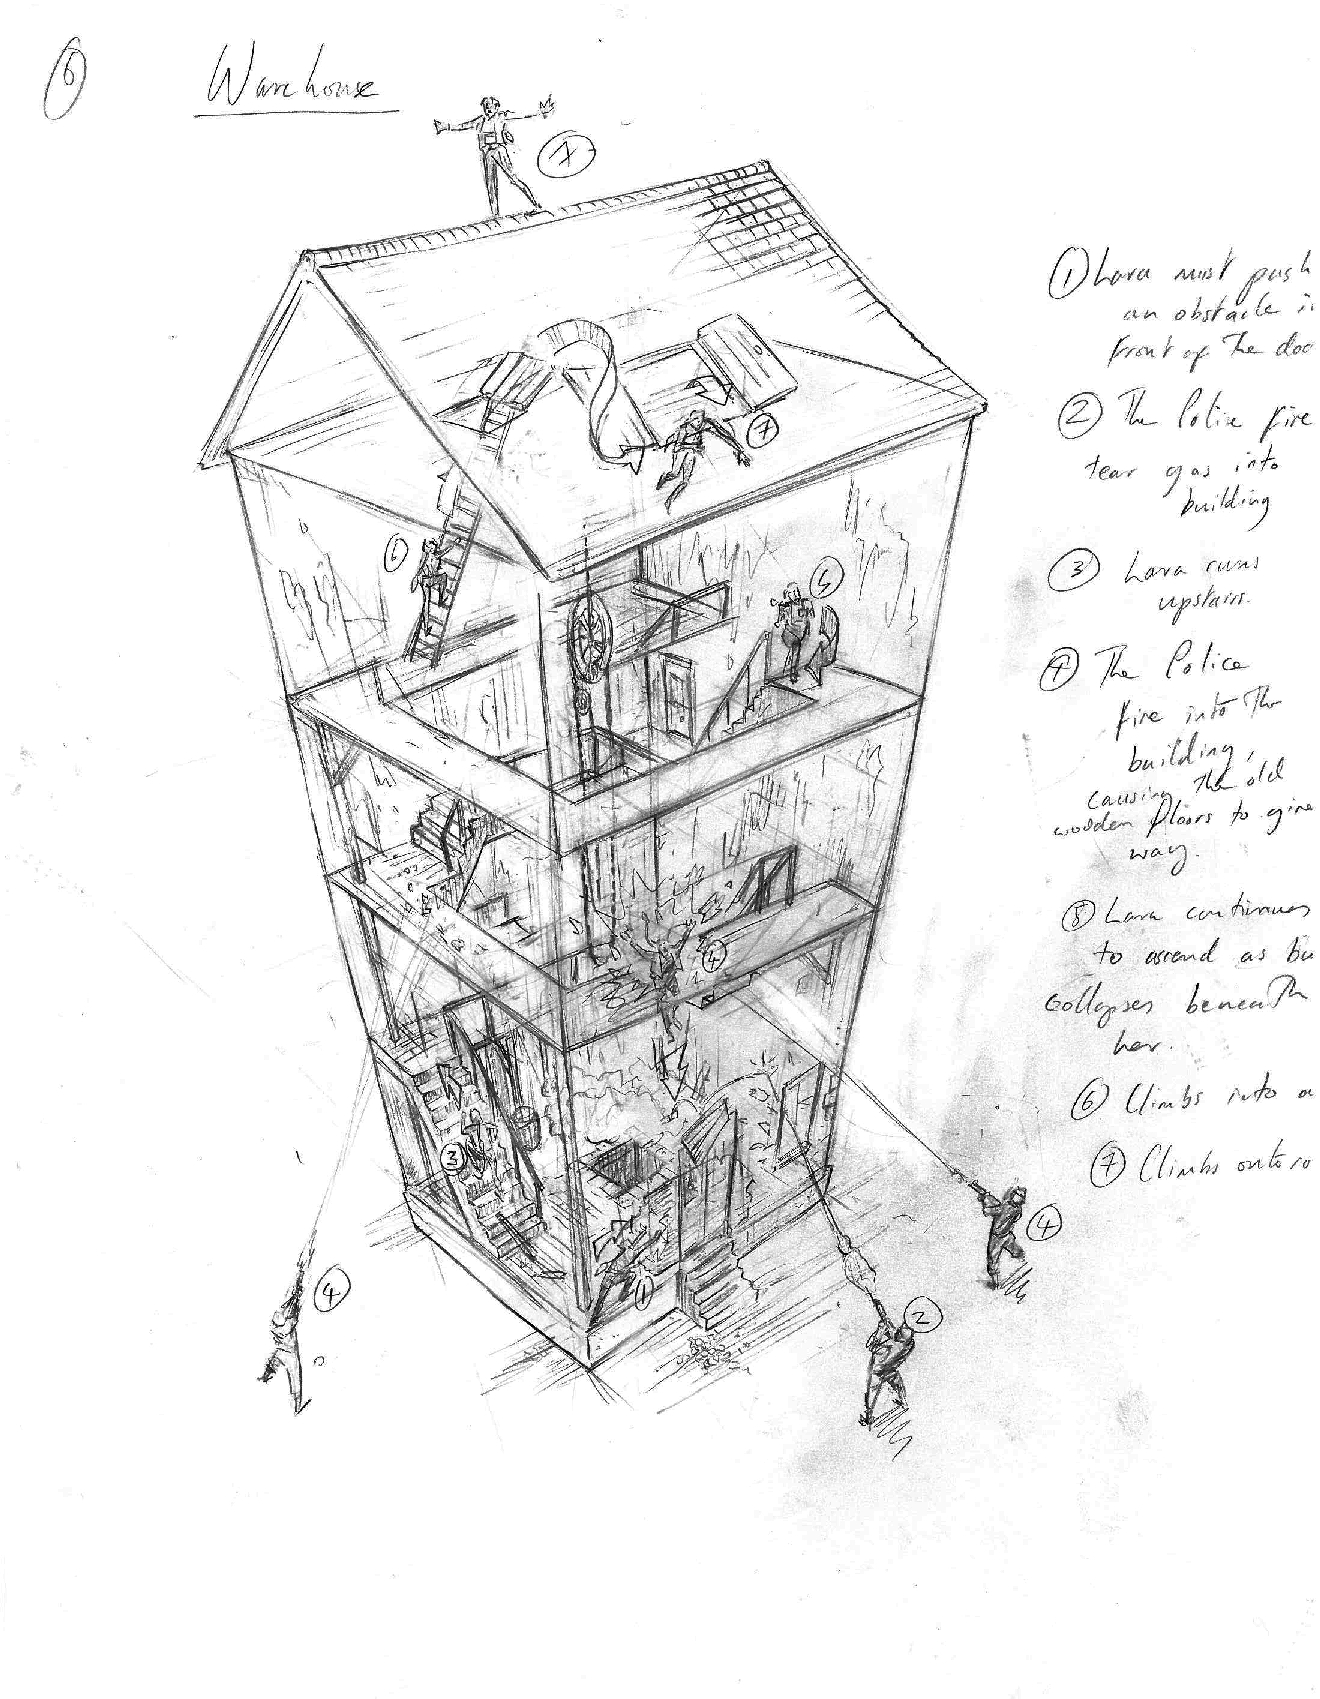 6
Warehouse
7
① Lara must push
an obstacle i
front of the doo
② The Police fire
tear gas into
building
③ Lara runs
upstairs.
④ The Police
fire into the
building,
causing the old
wooden floors to give
way.
⑤ Lara continues
to ascend as bu
collapses beneath
her.
⑥ Climbs into a
⑦ Climbs onto ro
7
6
5
4
3
1
4
4
2